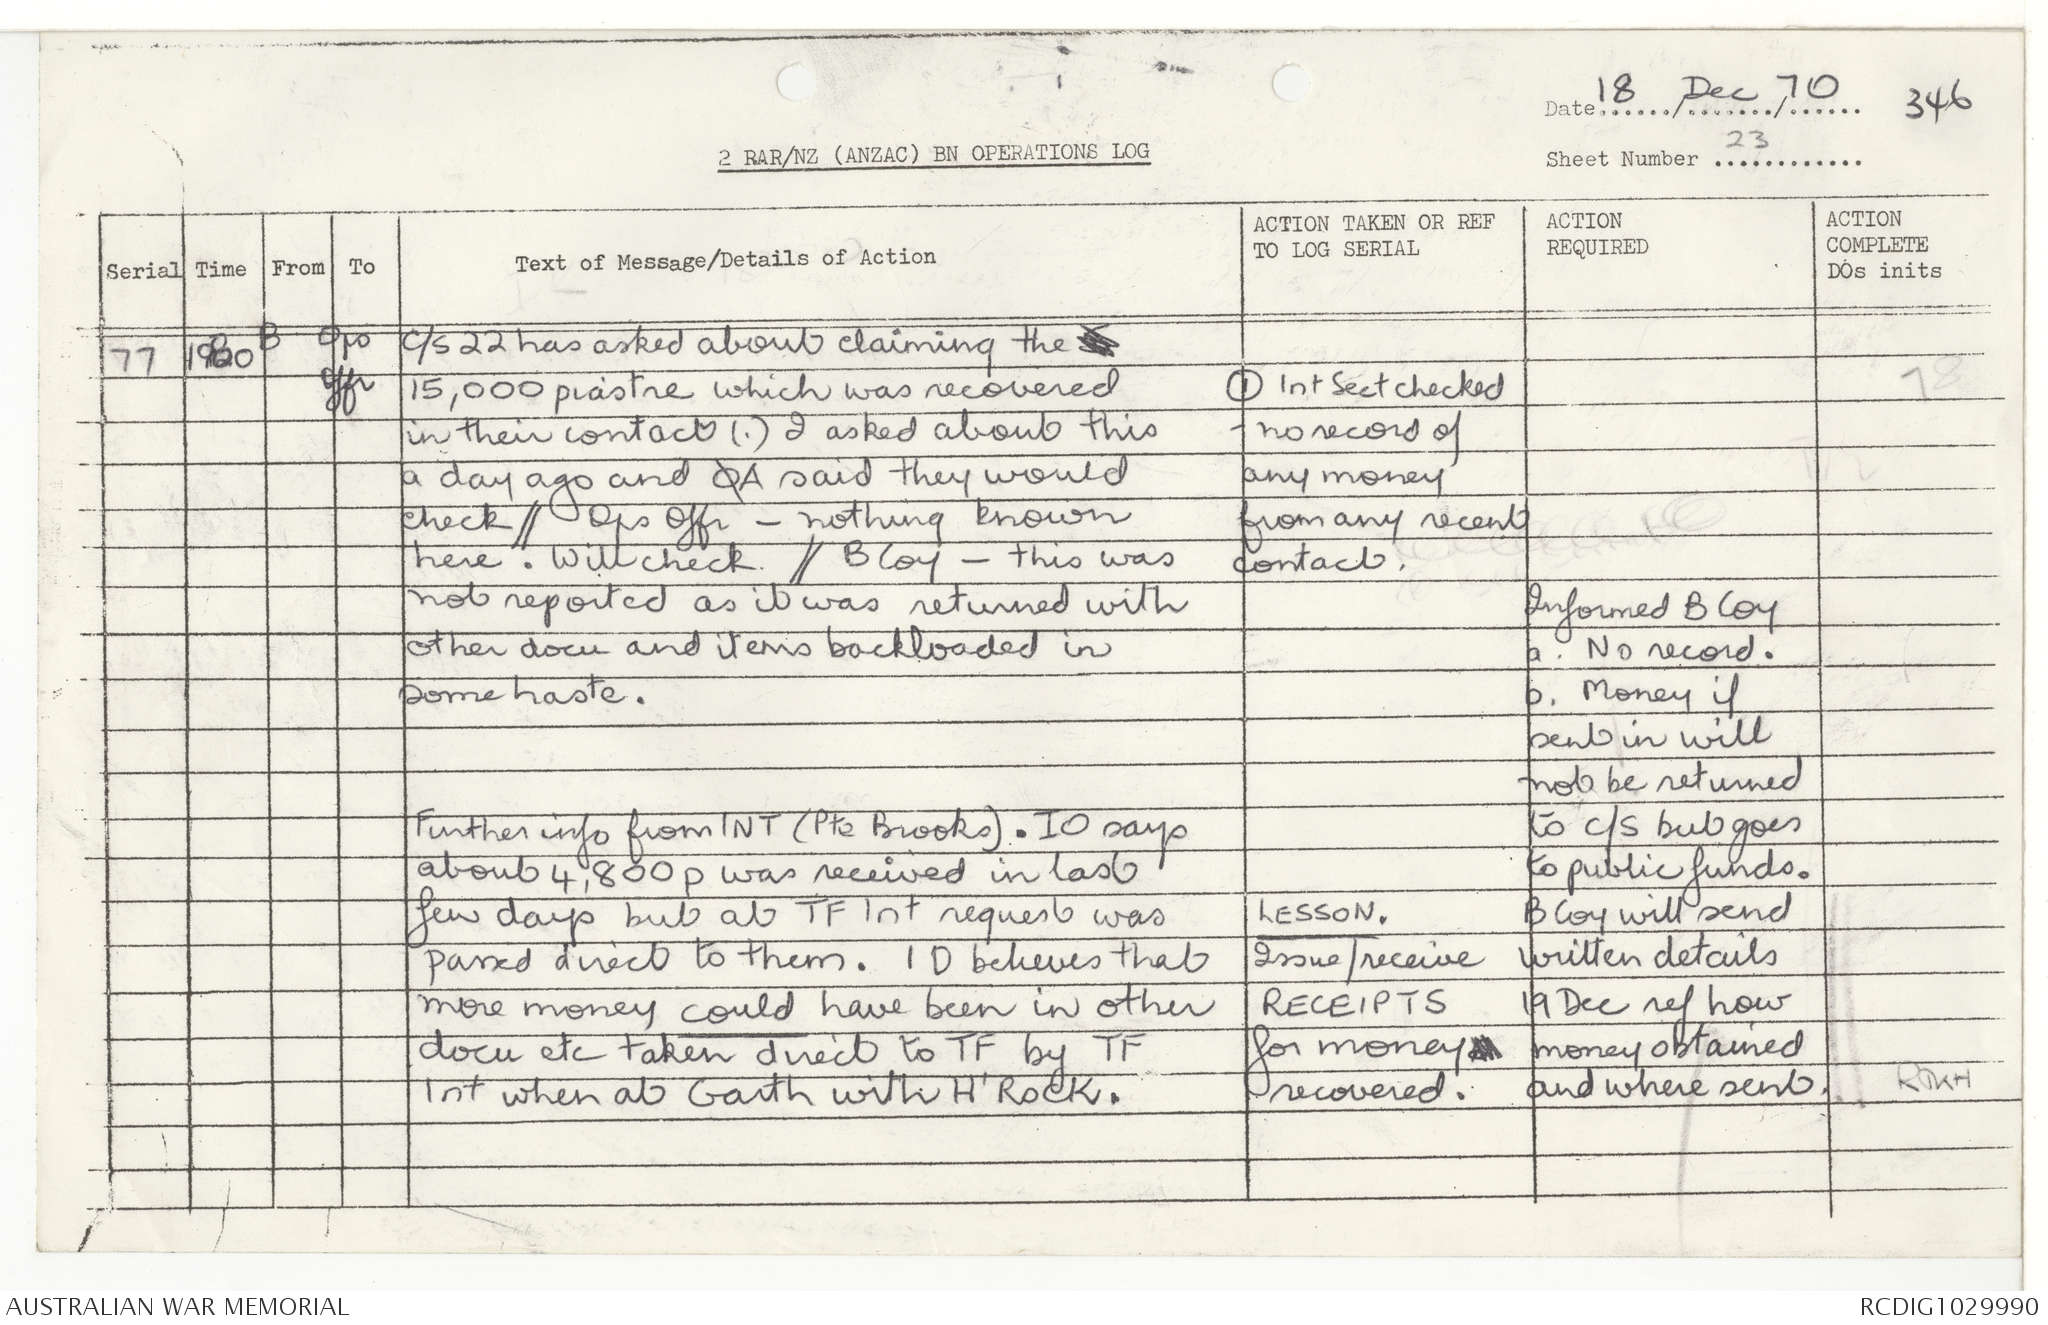 Date 18 / Dec / 70
346
2 RAR/NZ (ANZAC) BN OPERATIONS LOG
Sheet Number 23
Serial Time From To Text of Message/Details of Action
ACTION TAKEN OR REF
TO LOG SERIAL
ACTION
REQUIRED
ACTION
COMPLETE
DOs inits
77 B Ops C/S 22 has asked about claiming the
Offr 15,000 piastre which was recovered
in their contact (.) I asked about this
a day ago and QA said they would
check // Ops Offr - nothing known
here. Will check. // B Coy - this was
not reported as it was returned with
other docu and items backloaded in
some haste.
Further info from INT (Pte Brooks). IO says
about 4,800p was received in last
few days but at TF Int request was
passed direct to them. IO believes that
more money could have been in other
docu etc taken direct to TF by TF
Int when at Garth with H'Rock.
① Int Sect checked
- no record of
any money
from any recent
contact.
LESSON.
Issue/receive
RECEIPTS
for money
recovered.
Informed B Coy
a. No record.
b. Money if
sent in will
not be returned
to C/S but goes
to public funds.
B Coy will send
written details
19 Dec ref how
money obtained
and where sent.
78
AUSTRALIAN WAR MEMORIAL
RCDIG1029990